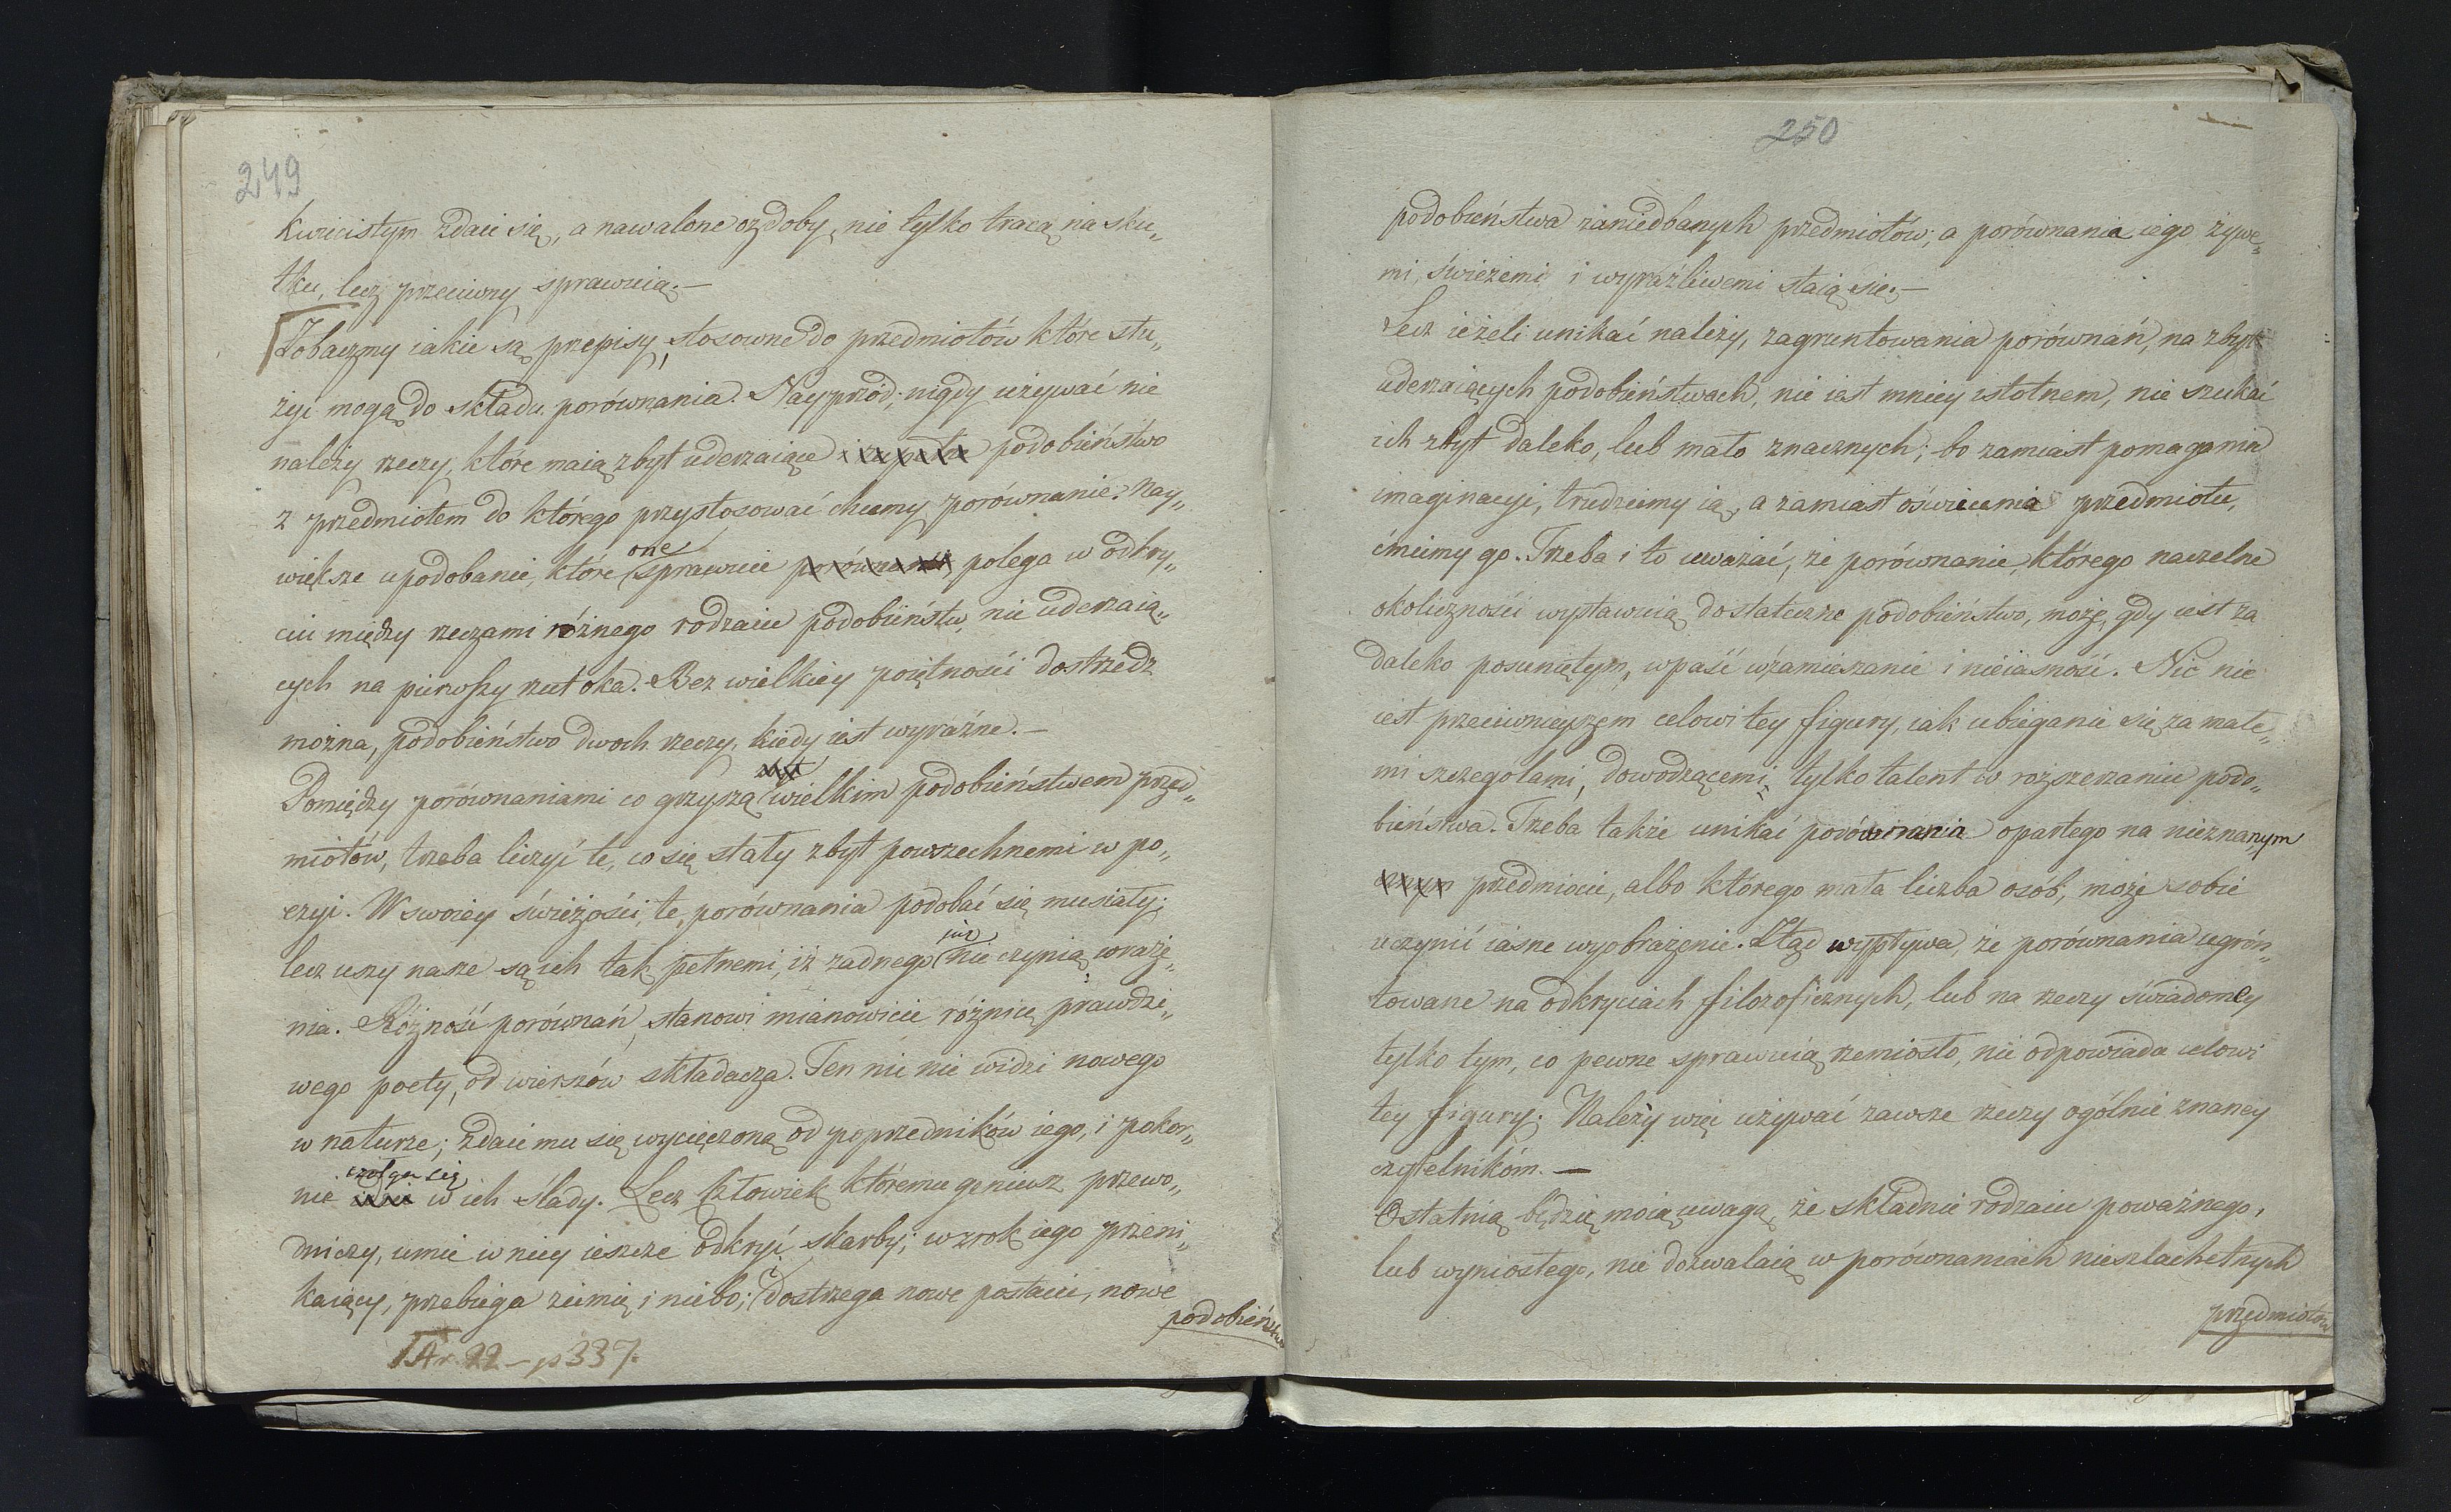 249
kwiecistym zdaie się, a nawalone ozdoby, nie tylko tracą na sku„
tku, lecz przeciwny sprawuią.—
Zobaczmy iakie są przepisy, stosowne do przedmiotów które słu„
żyć mogą do składu porównania. Nayprzód; nigdy używać nie
należy rzeczy, które maią zbyt uderzaiące i zupełne podobieństwo
z przedmiotem do którego przystosować chcemy porównanie. Nay„
one
większe upodobanie, które sprawuie porównanie, polega w odkry„
ciu między rzeczami różnego rodzaiu podobieństw, nie uderzaią„
cych na pierwszy rzut oka. Bez wielkiey poiętności dostrzedz
można, podobieństwo dwoch rzeczy, kiedy iest wyraźne.—
zbyt
Pomiędzy porównaniami co grzyszą wielkim podobieństwem przed„
miotów, trzeba liczyć te, co się stały zbyt powszechnemi w po„
ezyi. W swoiey świeżości, te, porównania podobać się musiały;
iuż
lecz uszy nasze są ich tak pełnemi, iż żadnego nie czynią wraże„
nia. Różność porównań, stanowi mianowicie różnicę prawdzi„
wego poety, od wierszów składacza. Ten nic nie widzi nowego
w naturze; zdaie mu się wycięczoną od poprzedników iego, i pokor„
czołga się
nie w ich ślady. Lecz Człowiek któremu geniusz przewo„
dniczy, umie w niey ieszcze odkryć skarby; wzrok iego przeni„
kaiący, przebiega ziemię i niebo; i dostrzega nowe postacie, nowe
podobieństwa
Ar. 22 – p 337.
250
podobieństwa zaniedbanych przedmiotów; a porównania iego żywe„
mi, świeżemi i wyraźliwemi staią się.—
Lecz ieżeli unikać należy, zagruntowania porównań, na zbyt
uderzaiących podobieństwach, nie iest mniey istotnem, nie szukać
ich zbyt daleko, lub mało znacznych; bo zamiast pomagania
imaginacyi, trudzimy ią, a zamiast oświecenia przedmiotu,
ćmimy go. Trzeba i to uważać, że porównanie, którego naczelne
okoliczności wystawuią dostateczne podobieństwo, może, gdy iest za
daleko posuniętym, wpaść w zamieszanie i nieiasność. Nic nie
iest przeciwnieyszem celowi tey figury, iak ubieganie się za małe„
mi szczegołami, dowodzącemi tylko talent w rozszerzaniu podo„
bieństwa. Trzeba także unikać porównania opartego na nieznanym
przedmiocie, albo którego mała liczba osób, może sobie
uczynić iasne wyobrażenie. Ztąd wypływa, że porównania ugrón„
towane na odkryciach filozoficznych, lub na rzeczy świadomey
tylko tym, co pewne sprawuią rzemiosło, nie odpowiada celowi
tey figury. Należy więc używać zawsze rzeczy ogólnie znaney
czytelnikóm.—
Ostatnią będzie moią uwagą, że składnie rodzaiu poważnego,
lub wyniosłego, nie dozwalaią w porównaniach nieszlachetnych
przedmiotów